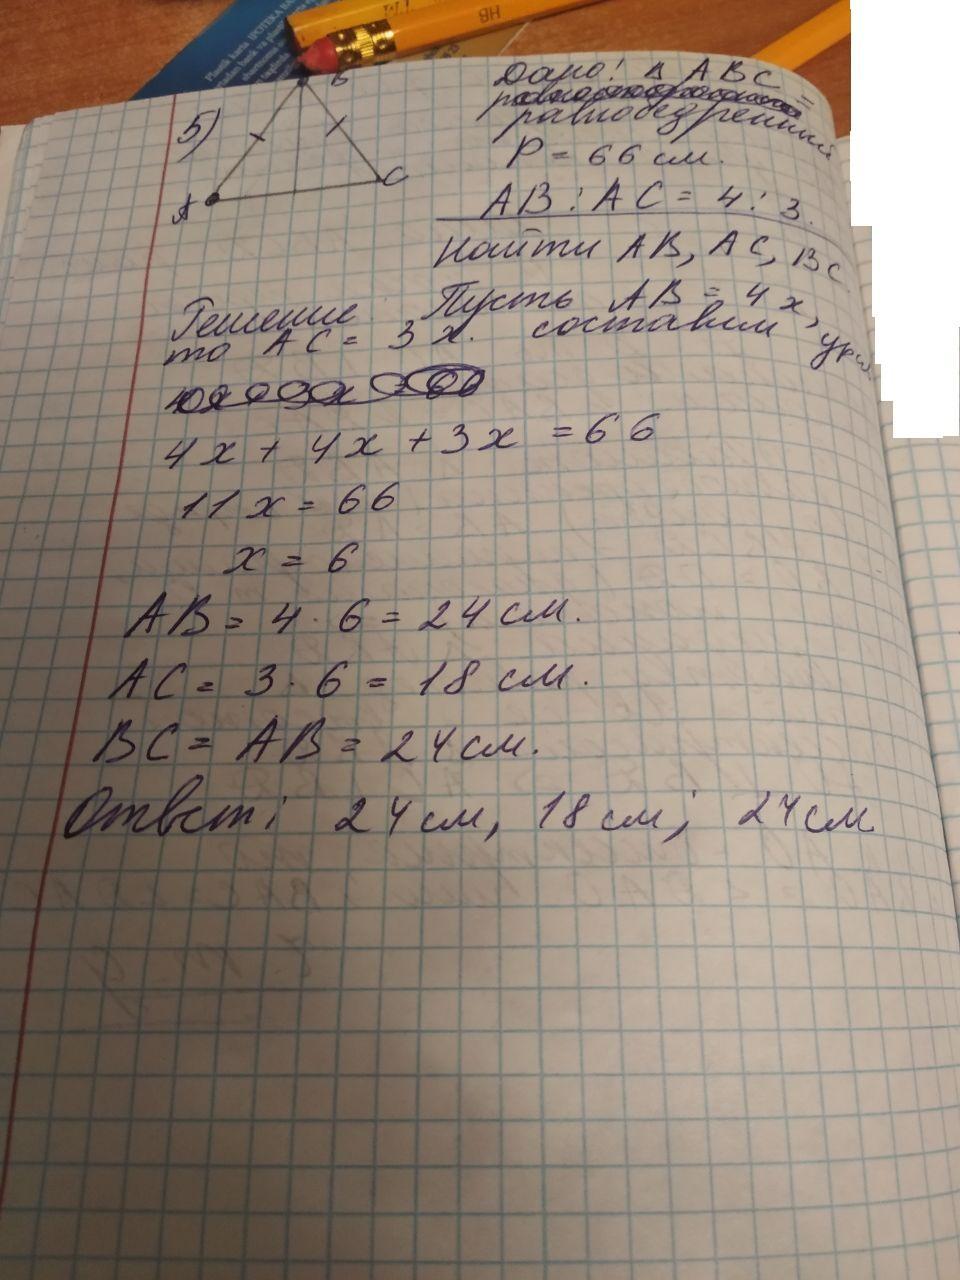 HB
Plastik karta IPOTEKA BA
B
5)
A
C
Дано: Δ ABC =
равнобедренный
P = 66 см.
AB : AC = 4 : 3.
Найти AB, AC, BC.
Решение Пусть AB = 4x,
то AC = 3x. составим ур.
4x + 4x + 3x = 66
11x = 66
x = 6
AB = 4 · 6 = 24 см.
AC = 3 · 6 = 18 см.
BC = AB = 24 см.
Ответ: 24 см, 18 см; 24 см